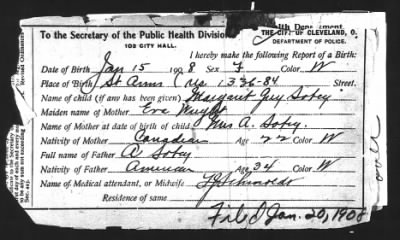 Health Department.
THE CITY OF CLEVELAND, O.
DEPARTMENT OF POLICE.
To the Secretary of the Public Health Division
102 CITY HALL.
I hereby make the following Report of a Birth:
Date of Birth Jan 15 1908 Sex F Color W
Place of Birth St Anns 1336-84 Street.
Name of child (if any has been given) Margaret Sobey
Maiden name of Mother Eva Wright
Name of Mother at date of birth of child Mrs A. Sobey.
Nativity of Mother Canadian Age 22 Color W
Full name of Father A Sobey
Nativity of Father American Age 34 Color W
Name of Medical attendant, or Midwife
Residence of same
Filed Jan. 20, 1908